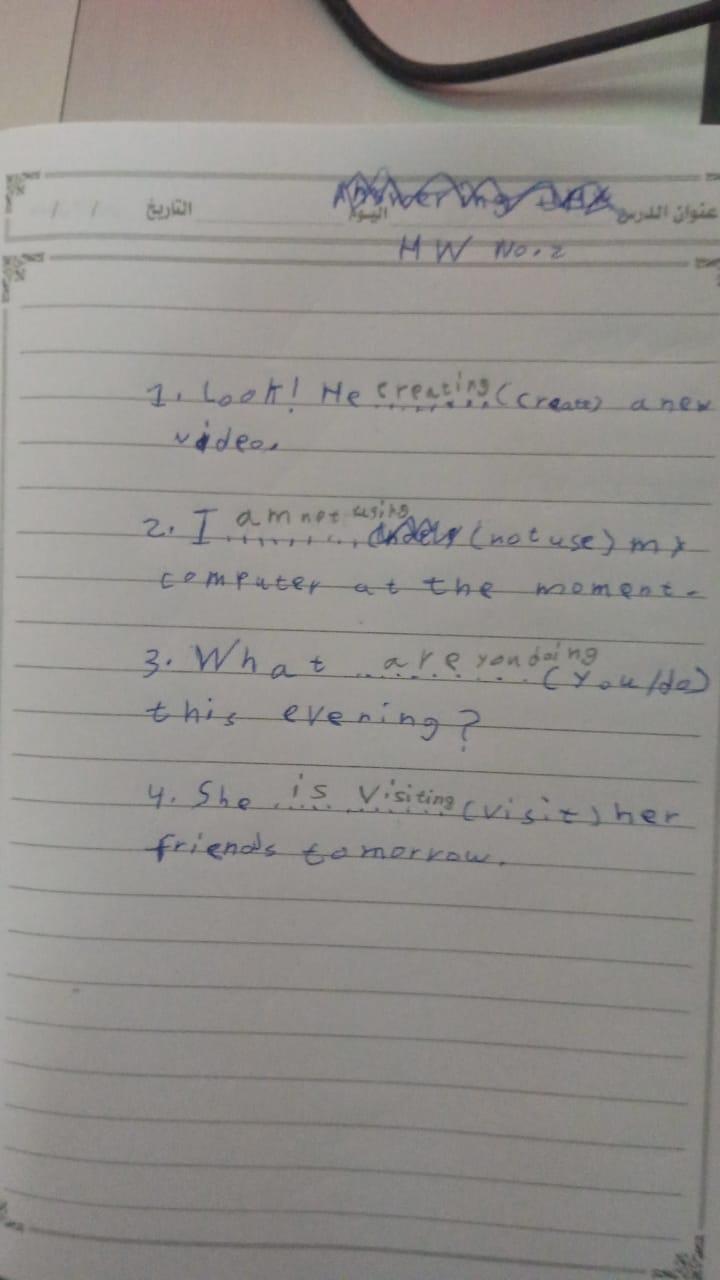 عنوان الدرس اليوم التاريخ / /
HW No.2
1. Look! He creating (create) a new
video.
2. I am not using (not use) my
computer at the moment.
3. What are you doing (you/do)
this evening?
4. She is visiting (visit) her
friends tomorrow.